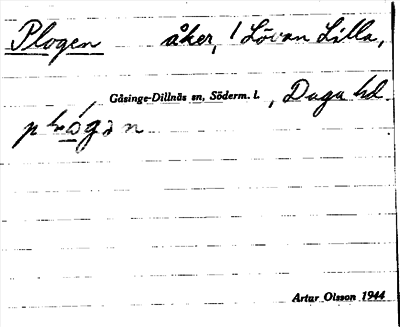 Plogen åker, / Lövan Lilla,
Gåsinge-Dillnäs sn, Söderm. l., Daga hd.
Artur Olsson 1944